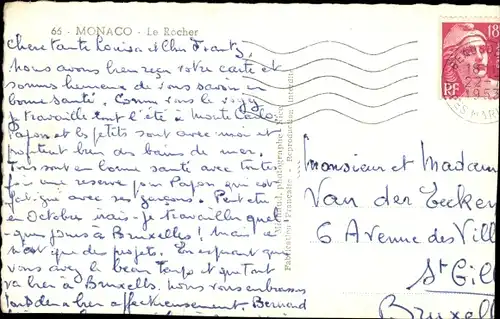 66 - MONACO - Le Rocher
Chère tante Louisa et Cher Frantz,
nous avons bien reçu votre carte et
sommes heureux de vous savoir en
bonne santé. Comme vous le voyez
je travaille tout l'été à Monte Carlo
et les petits sont avec moi et
profitent bien des bains de mer.
Tous sont en bonne santé avec toute
une réserve pour Papa qui est
fatigué avec ses garçons. Peut être
en Octobre irais-je travailler quel
ques jours à Bruxelles! Mais ce
n'est que des projets. En espérant que
vous avez le beau temps et que tout
va bien à Bruxelles. nous vous embrassons
bien affectueusement. Bernard
photographe
Fabrication Française - Reproduction interdite
18
RF
22-
1953
Monsieur et Madame
Van der
6 Avenue des Vill
St Gil
Bruxel